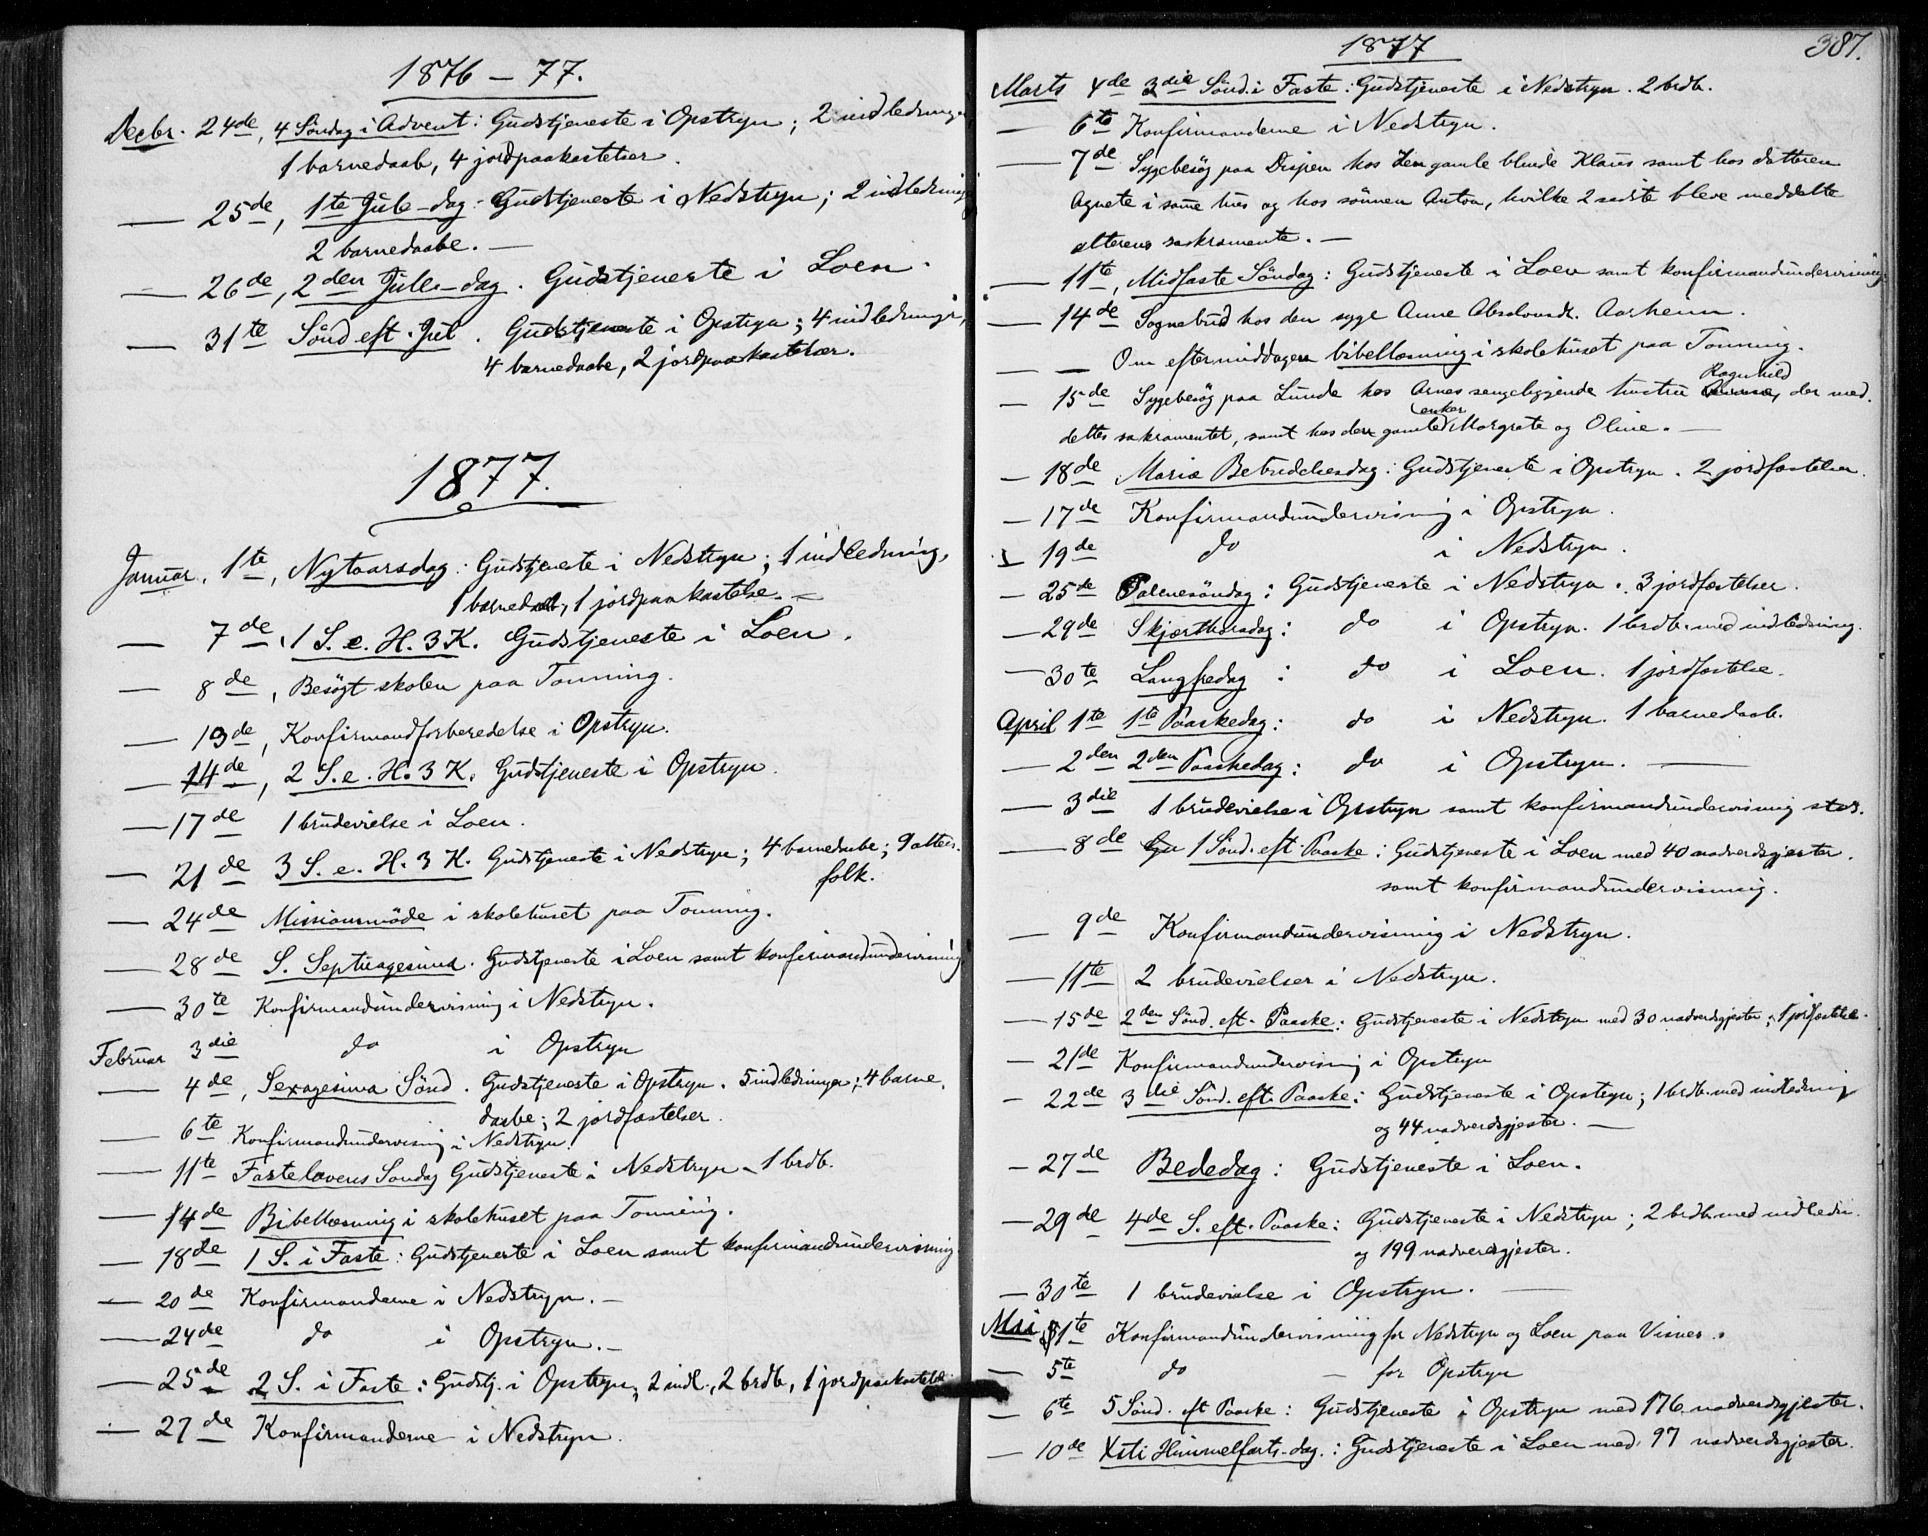 1876 – 77.
Decbr. 24de, 4 Søndag i Advent: Gudstjeneste i Opstryn; 2 indledninger
1 barnedaab, 4 jordpaakastelser.
— 25de, 1te Jule-dag. Gudstjeneste i Nedstryn; 2 indledninger
2 barnedaabe. —
— 26de, 2den Jule-dag. Gudstjeneste i Loen.
— 31te Sönd eft. Jul. Gudstjeneste i Opstryn; 4 indledninger,
4 barnedaabe, 2 jordpaakastelser.
1877.
Januar. 1te, Nytaarsdag: Gudstjeneste i Nedstryn; 1 indledning,
1 barnedaab, 1 jordpaakastelse. —
— 7de, 1 S. e. H. 3 K. Gudstjeneste i Loen.
— 8de, Besøgt skolen paa Tonning.
— 13de, Konfirmandforberedelse i Opstryn.
— 14de, 2 S. e. H. 3 K. Gudstjeneste i Opstryn.
— 17de 1 brudevielse i Loen.
— 21de 3 S. e. H. 3 K. Gudstjeneste i Nedstryn; 4 barnedaabe; 9 alters-
folk.
— 24de Missionsmöde i skolehuset paa Tonning.
— 28de S. Septuagesima. Gudstjeneste i Loen samt konfirmandundervisning
— 30te Konfirmandundervisning i Nedstryn.
Februar 3die do i Opstryn
— 4de, Sexagesima Sönd. Gudstjeneste i Opstryn. 5 indledninger; 4 barne-
daabe; 2 jordfæstelser.
— 6te Konfirmandundervisning i Nedstryn.
— 11te Fastelavens Sondag Gudstjeneste i Nedstryn – 1 brdb.
— 14de Bibellæsning i skolehuset paa Tonning.
— 18de 1 S. i Faste: Gudstjeneste i Loen samt konfirmandundervisning
— 20de Konfirmanderne i Nedstryn. —
— 24de do i Opstryn. —
— 25de 2 S. i Faste: Gudstj. i Opstryn; 2 indl., 2 brdb, 1 jordpaakastelse
— 27de Konfirmanderne i Nedstryn.
1877 387.
Marts 4de 3die Sönd. i Faste: Gudstjeneste i Nedstryn. 2 brdb.
— 6te Konfirmanderne i Nedstryn.
— 7de Sygebesög paa Dispen hos den gamle blinde Klaus samt hos datteren
Agnete i samme hus og hos sönnen Anton, hvilke 2 sidste bleve meddelte
alterens sakramente. —
— 11te, Midfaste Söndag: Gudstjeneste i Loen samt konfirmandundervisning
— 14de Sognebud hos den syge Anne Absalonsdr. Aarheim.
— — Om eftermiddagen bibellæsning i skolehuset paa Tonning.
Ragnhild
— 15de Sygebesög paa Lunde hos Arnes sengeliggende hustru, der med-
enker
deltes sakramentet, samt hos den gamle Margrete og Oline. —
— 18de Mariæ Bebudelsesdag: Gudstjeneste i Opstryn. 2 jordfæstelser.
— 17de Konfirmandundervisning i Opstryn.
— 19de do i Nedstryn.
— 25de Palmesöndag: Gudstjeneste i Nedstryn. 3 jordfæstelser.
— 29de Skjærthorsdag: do i Opstryn. 1 brdb. med indledning.
— 30te Langfredag: do i Loen. 1 jordfæstelse.
April 1te 1te Paaskedag: do i Nedstryn. 1 barnedaab.
— 2den 2den Paaskedag: do i Opstryn. —
— 3die 1 brudevielse i Opstryn samt konfirmandundervisning sts.
— 8de 1 Sönd. eft Paaske: Gudstjeneste i Loen med 40 nadverdsgjester.
samt konfirmandundervisning.
— 9de Konfirmandundervisning i Nedstryn.
— 11te 2 brudevielser i Nedstryn.
— 15de 2den Sönd. eft. Paaske: Gudstjeneste i Nedstryn med 30 nadverdsgjester; 1 jordfæstelse.
— 21de Konfirmandundervisning i Opstryn
— 22de 3die Sönd. eft. Paaske: Gudstjeneste i Opstryn; 1 brdb. med indledning
og 44 nadverdsgjester. —
— 27de Bededag: Gudstjeneste i Loen.
— 29de 4de S. eft. Paaske: Gudstjeneste i Nedstryn; 2 brdb. med indledn.
og 199 nadverdsgjester.
— 30te 1 brudevielse i Opstryn. —
Mai 1te Konfirmandundervisning for Nedstryn og Loen paa Visnes.
— 5te do — for Opstryn
— 6te 5 Sönd. eft Paaske: Gudstjeneste i Opstryn med 176 nadverdsgjester.
— 10de Xsti Himmelfarts-dag.: Gudstjeneste i Loen med 97 nadverdsgjester.